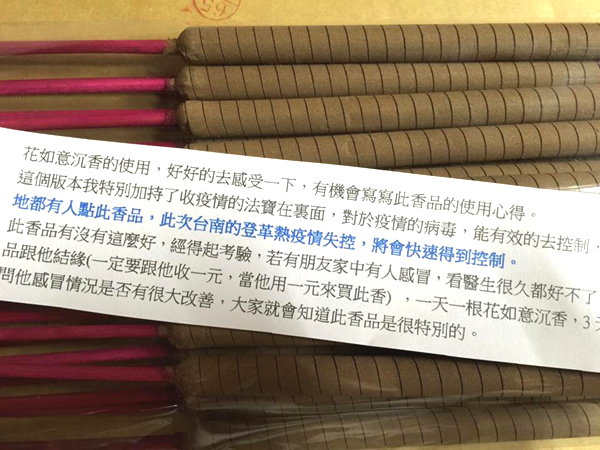 花如意沉香的使用，好好的去感受一下，有機會寫寫此香品的使用心得。
這個版本我特別加持了收疫情的法寶在裏面，對於疫情的病毒，能有效的去控制、
地都有人點此香品，此次台南的登革熱疫情失控，將會快速得到控制。
此香品有沒有這麼好，經得起考驗，若有朋友家中有人感冒，看醫生很久都好不了
品跟他結緣(一定要跟他收一元，當他用一元來買此香），一天一根花如意沉香，3
問他感冒情況是否有很大改善，大家就會知道此香品是很特別的。